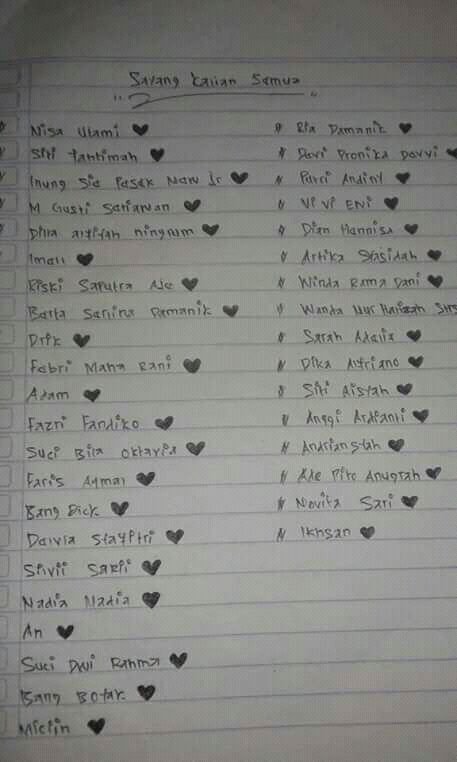 Sayang Kalian Semua
Nisa Utami ♥
Siti Fantimah ♥
Inung Sie Pasak Naw Jr ♥
M Gusti Satiawan ♥
Dilla ningrum ♥
Imall ♥
Riski Saputra Ale ♥
Barta Sanina Damanik ♥
Drik ♥
Febri Maha Rani ♥
Adam ♥
Fazri Fandiko ♥
Suci Bila Oktavia ♥
Faris Aqmal ♥
Bang Dick ♥
Daivia Stayfitri ♥
Silvii Sarii ♥
Nadia Nadia ♥
An ♥
Suci Dwi Rahma ♥
Bang Botak ♥
Miciin ♥
Ria Damanik ♥
Davi Dronika Davvi ♥
Patri Andiny ♥
Vi Vi Eni ♥
Dian Hannisa ♥
Artika Stasidah ♥
Winda Rama Dani ♥
Wanda Nur
Sarah Adalia ♥
Dika Alfriano ♥
Siti Aisyah ♥
Anggi Ardianti ♥
Andriansyah ♥
Ade Pito Anugrah ♥
Novita Sari ♥
Ikhsan ♥